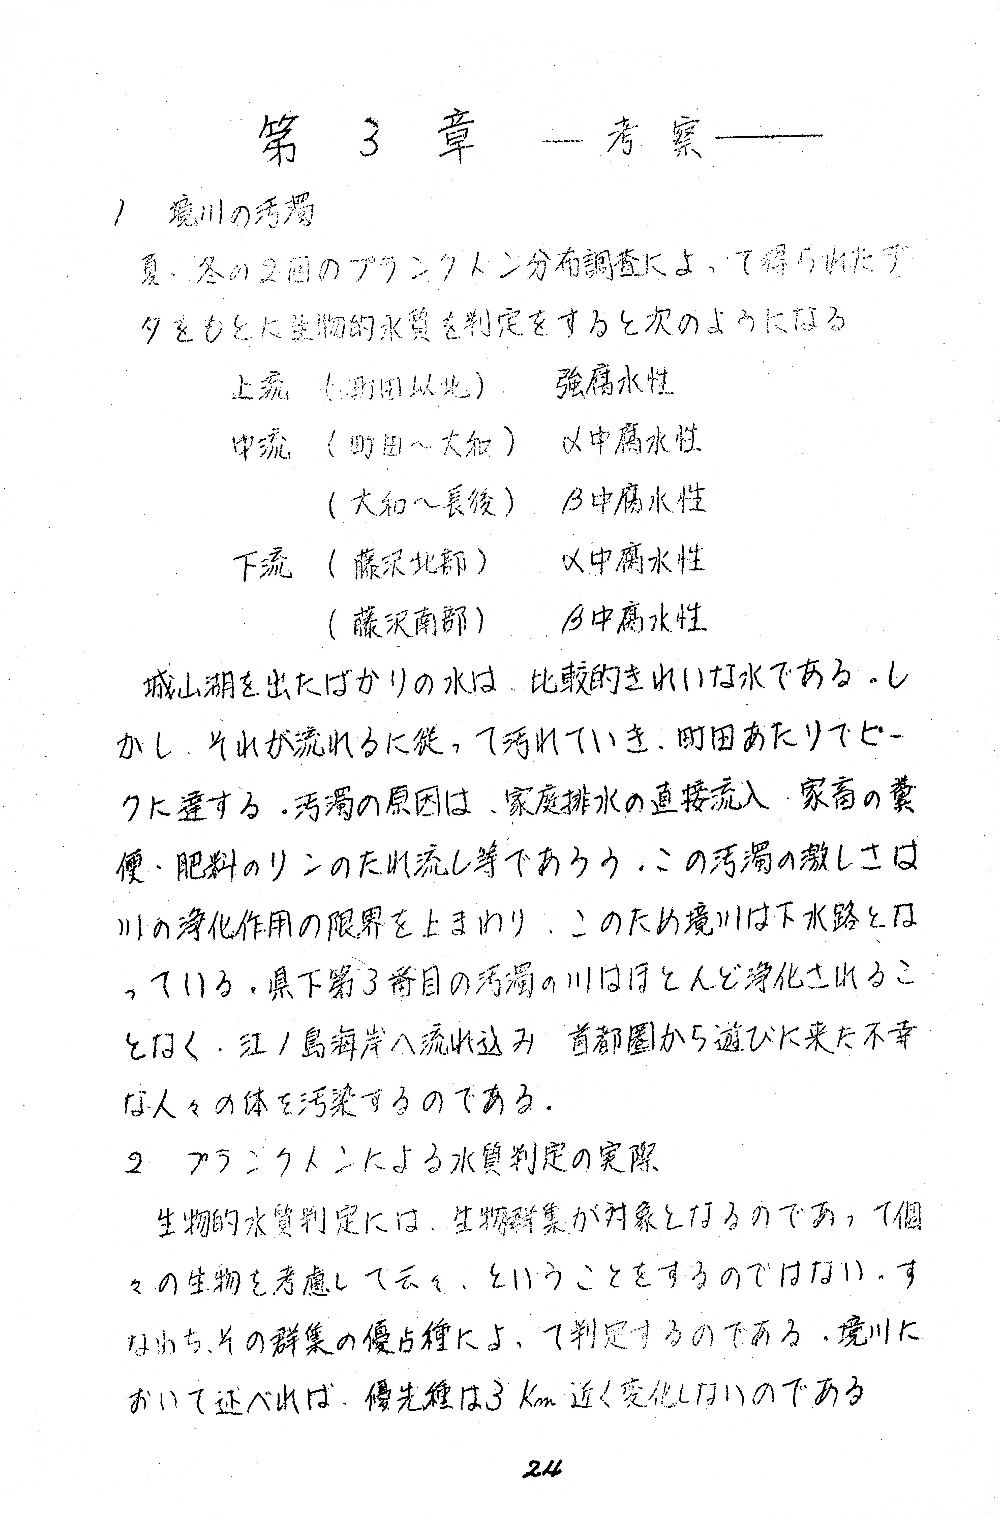 第 3 章 ― 考 察 ――
1 境川の汚濁
夏・冬の2回のプランクトン分布調査によって得られたデ
タをもとに生物的水質を判定をすると次のようになる
上流 (町田以北) 強腐水性
中流 (町田～大和) α中腐水性
(大和～長後) β中腐水性
下流 (藤沢北部) α中腐水性
(藤沢南部) β中腐水性
城山湖を出たばかりの水は、比較的きれいな水である。し
かし、それが流れるに従って汚れていき、町田あたりでピー
クに達する。汚濁の原因は、家庭排水の直接流入、家畜の糞
便・肥料のリンのたれ流し等であろう。この汚濁の激しさは
川の浄化作用の限界を上まわり、このため境川は下水路とな
っている。県下第3番目の汚濁の川はほとんど浄化されるこ
となく、江ノ島海岸へ流れ込み 首都圏から遊びに来た不幸
な人々の体を汚染するのである。
2 プランクトンによる水質判定の実際
生物的水質判定には、生物群集が対象となるのであって個
々の生物を考慮して云々、ということをするのではない。す
なわち、その群集の優占種によって判定するのである。境川に
おいて述べれば、優先種は3Km近く変化しないのである
24